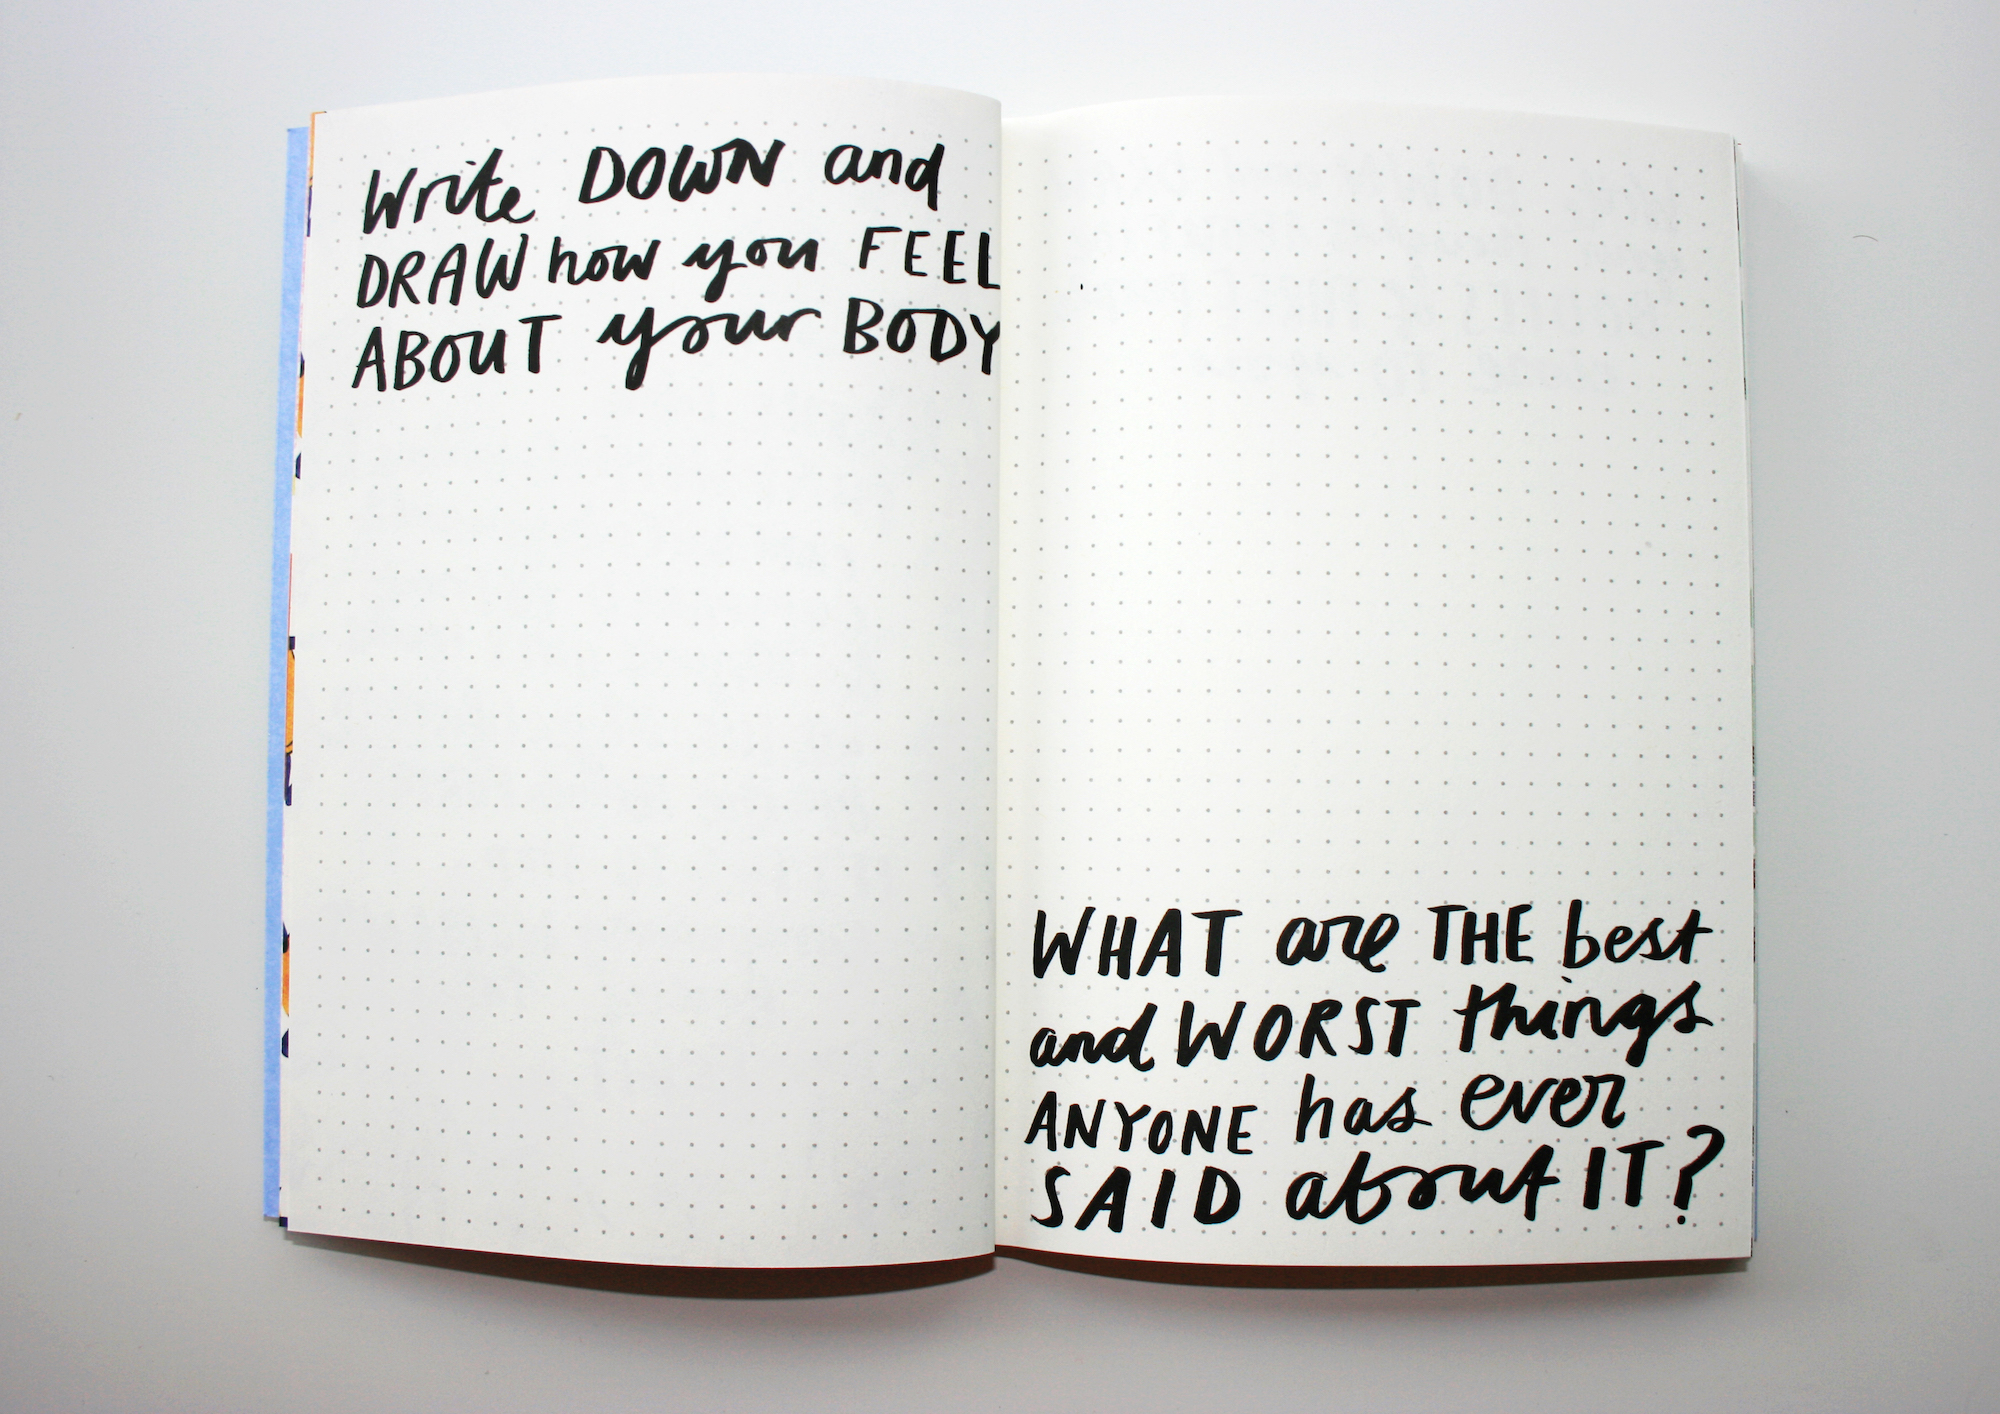 Write DOWN and
DRAW how you FEEL
ABOUT your BODY
WHAT are THE best
and WORST things
ANYONE has ever
SAID about IT?